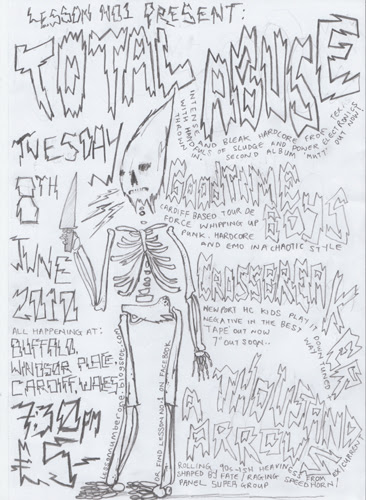 LESSON NO1 PRESENT:
TOTAL ABUSE
INTENSE AND BLEAK HARDCORE FROM TEX.
WITH HANDFULS OF SLUDGE AND POWER ELECTRONICS
THROWN IN. SECOND ALBUM 'MUTT' OUT NOW
TUESDAY
8TH
JUNE
2010
GOODTIME
BOYS
CARDIFF BASED TOUR DE
FORCE WHIPPING UP
PUNK, HARDCORE
AND EMO IN A CHAOTIC STYLE
CROSSBREAKER
NEWPORT HC KIDS PLAY IT DOWN TUNED
NEGATIVE IN THE BEST
TAPE OUT NOW
7" OUT SOON..
ALL HAPPENING AT:
BUFFALO
WINDSOR PLACE
CARDIFF, WALES
7:30PM
£5
lessonnumberone.blogspot.com
OR FIND LESSON NO.1 ON FACEBOOK
A THOUSAND
ARROWS
ROLLING 90s-ISH HEAVINESS FROM
SHAPED BY FATE / RAGING SPEEDHORN /
PANEL SUPER GROUP